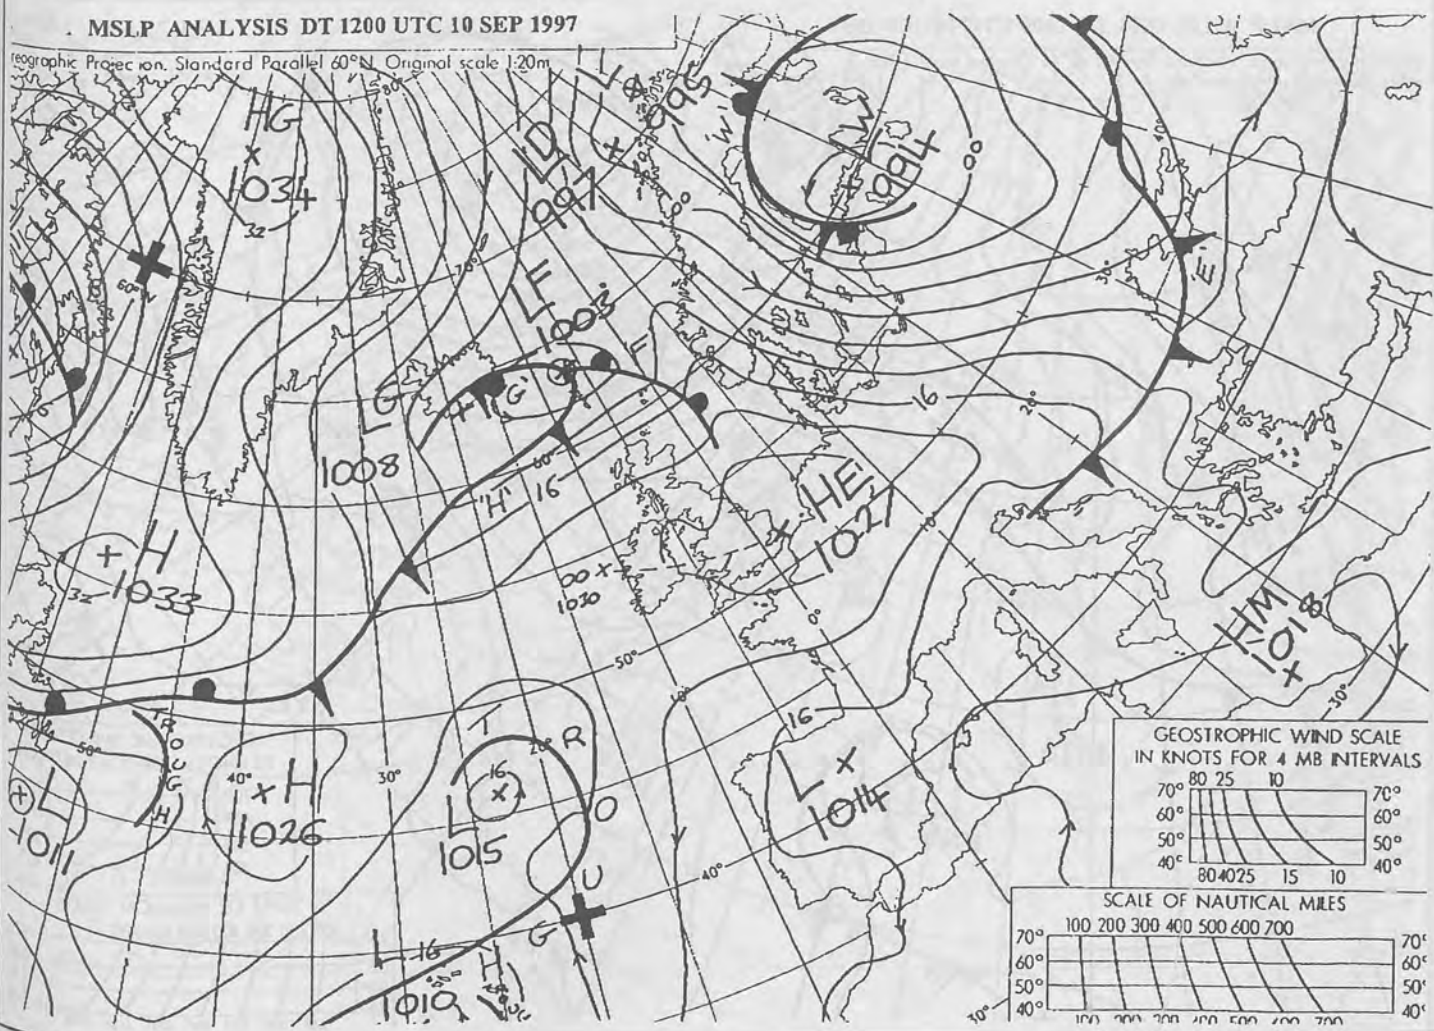 MSLP ANALYSIS DT 1200 UTC 10 SEP 1997
reographic Projec ion. Standard Parallel 60°N Original scale 1:20m
80°
HG
1034
32
60°N
LD
997
995
'W'
LW
994
00
00
40°
30°
'E'
70°
LF
1003
'F'
'G'
LG
1008
60
'H'
16
16
20°
HE
1027
10°
00
1030
H
1033
32
HM
1018
50°
0°
10°
30°
TROUGH
50°
L
1011
40°
H
1026
30°
T R O U G H
20°
16
L
1015
16
L
1014
40°
L 16
1010
10°
30°
GEOSTROPHIC WIND SCALE
IN KNOTS FOR 4 MB INTERVALS
80 25 10
70° 70°
60° 60°
50° 50°
40° 40°
80 40 25 15 10
SCALE OF NAUTICAL MILES
100 200 300 400 500 600 700
70° 70°
60° 60°
50° 50°
40° 40°
100 200 300 400 500 600 700